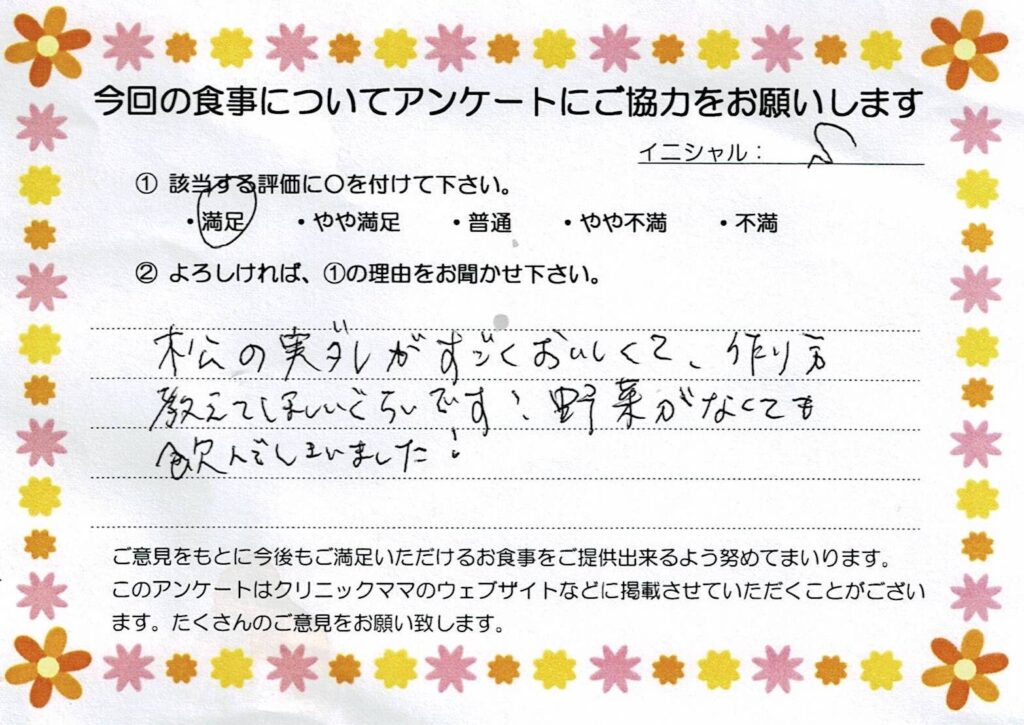 今回の食事についてアンケートにご協力をお願いします
イニシャル： S
① 該当する評価に〇を付けて下さい。
・満足 ・やや満足 ・普通 ・やや不満 ・不満
② よろしければ、①の理由をお聞かせ下さい。
松の実ダレがすごくおいしくて、作り方
教えてほしいぐらいです！野菜がなくても
飲んでしまいました！
ご意見をもとに今後もご満足いただけるお食事をご提供出来るよう努めてまいります。
このアンケートはクリニックママのウェブサイトなどに掲載させていただくことがござい
ます。たくさんのご意見をお願い致します。